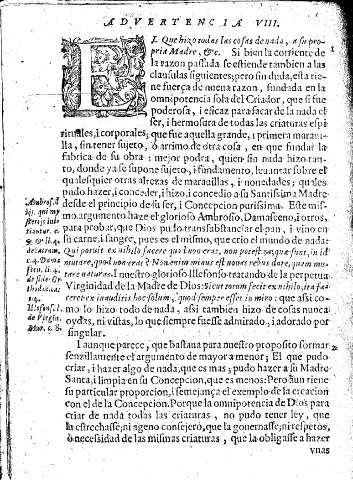 ADVERTENCIA VIII.
EL Que hizo todas las cosas de nada, a su propria Madre, &c. Si bien la corriente de
la razon passada se estiende tambien a las
clausulas siguientes; pero sin duda, esta tiene
fuerça de nueva razon, fundada en la
omnipotencia sola del Criador, que si fue
poderosa, i eficaz para sacar de la nada el
ser, i hermosura de todas las criaturas espirituales,
i corporales; que fue aquella grande, i primera maravilla,
sin tener sujeto, ò arrimo de otra cosa, en que fundar la
fabrica de su obra: mejor podra, quien sin nada hizo tanto,
donde ya se supone sujeto, i fundamento, levantar sobre el
qualesquier otras altezas de maravillas, i novedades; quales
pudo hazer, i conceder, i hizo, i concedio a su Santissima Madre
desde el principio de su ser, i Concepcion purissima. Este mismo
argumento haze el glorioso Ambrosio, Damasceno, i otros,
para probar, que Dios pudo transubstanciar el pan, i vino en
su carne, i sangre, pues es el mismo, que crio el mundo de nada:
Qui potuit ex nihilo facere quod non erat, non potest ea, quæ sunt, in id
mutare, quod non erant? Non enim minus est novas rebus dare, quam mutare
naturas. I nuestro glorioso Illefonso tratando de la perpetua
Virginidad de la Madre de Dios: Sicut totum fecit ex nihilo, ita faceret
ex inauditis hoc solum, quod semper esset in miro: que assi como
lo hizo todo de nada, assi tambien hizo de cosas nunca
oydas, ni vistas, lo que siempre fuesse admirado, i adorado por
singular.
I aunque parece, que bastaua para nuestro proposito formar
senzillamente el argumento de mayor a menor; El que pudo
criar, i hazer algo de nada, que es mas; pudo hazer a su Madre
Santa, i limpia en su Concepcion, que es menos: Pero aun tiene
su particular proporcion, i semejança el exemplo de la creacion
con el de la Concepcion. Porque la omnipotencia de Dios para
criar de nada todas las criaturas, no pudo tener ley, que
la estrechasse; ni ageno consejero, que la governasse; ni respetos,
ò necessidad de las mismas criaturas, que la obligasse a hazer
vnas